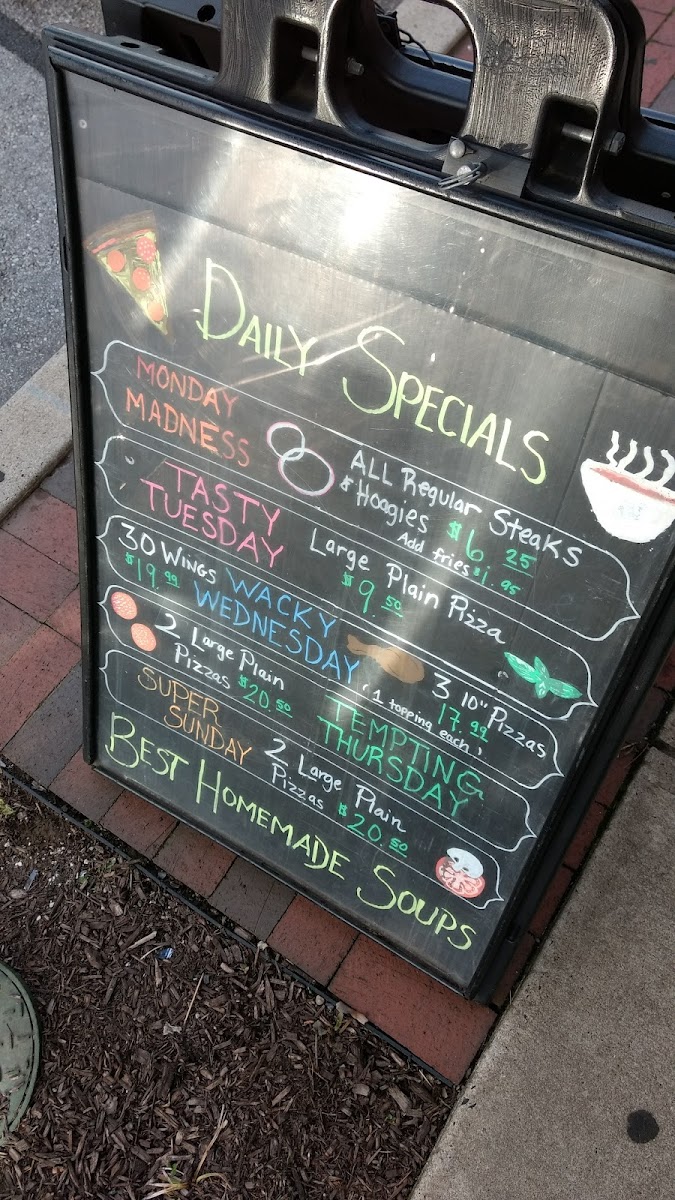 DAILY SPECIALS
MONDAY
MADNESS
ALL Regular Steaks
& Hoagies $6.25
Add fries $1.95
TASTY
TUESDAY
Large Plain Pizza
$9.50
30 WINGS
$19.99
WACKY
WEDNESDAY
3 10" Pizzas
17.99
(1 topping each)
2 Large Plain
Pizzas $20.50
TEMPTING
THURSDAY
SUPER
SUNDAY
2 Large Plain
Pizzas $20.50
BEST HOMEMADE SOUPS